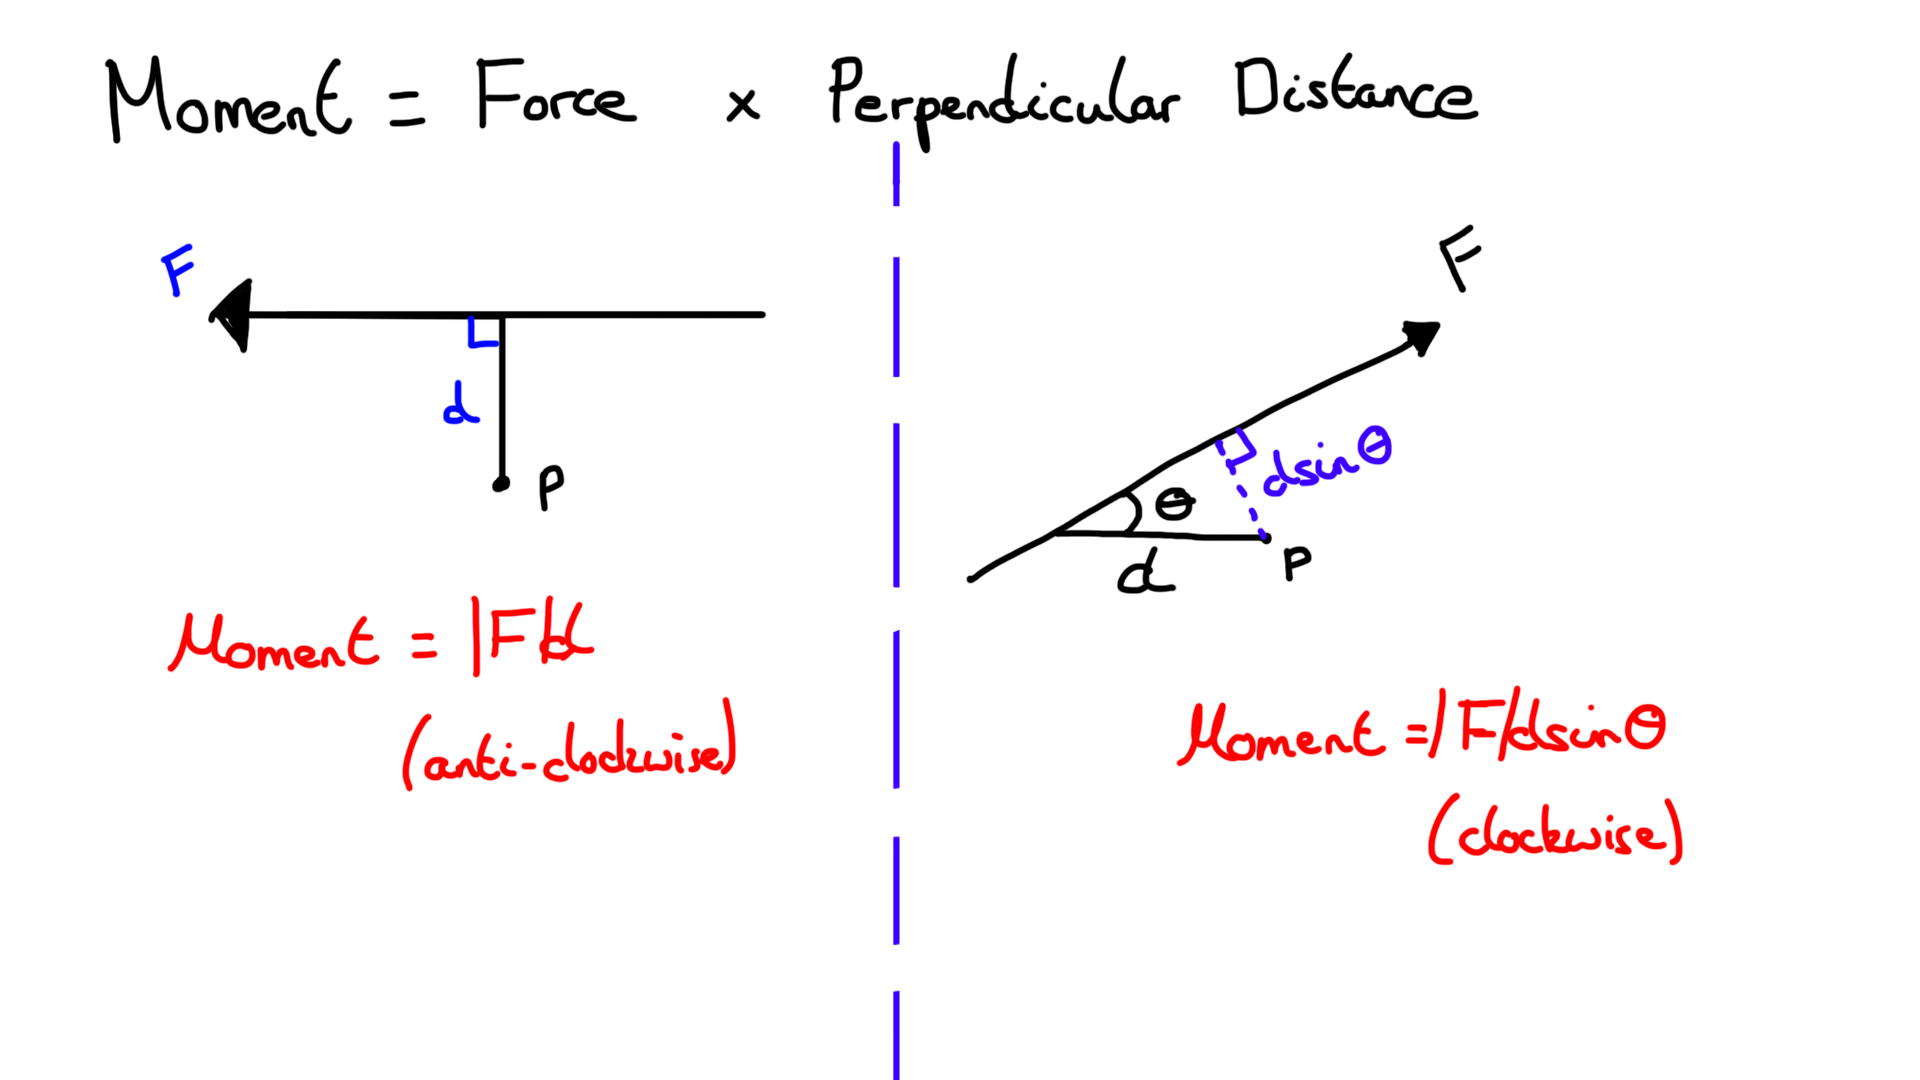 Moment = Force × Perpendicular Distance
F
d
P
Moment = |F|d
(anti-clockwise)
F
dsinθ
θ
d
P
Moment = |F|dsinθ
(clockwise)